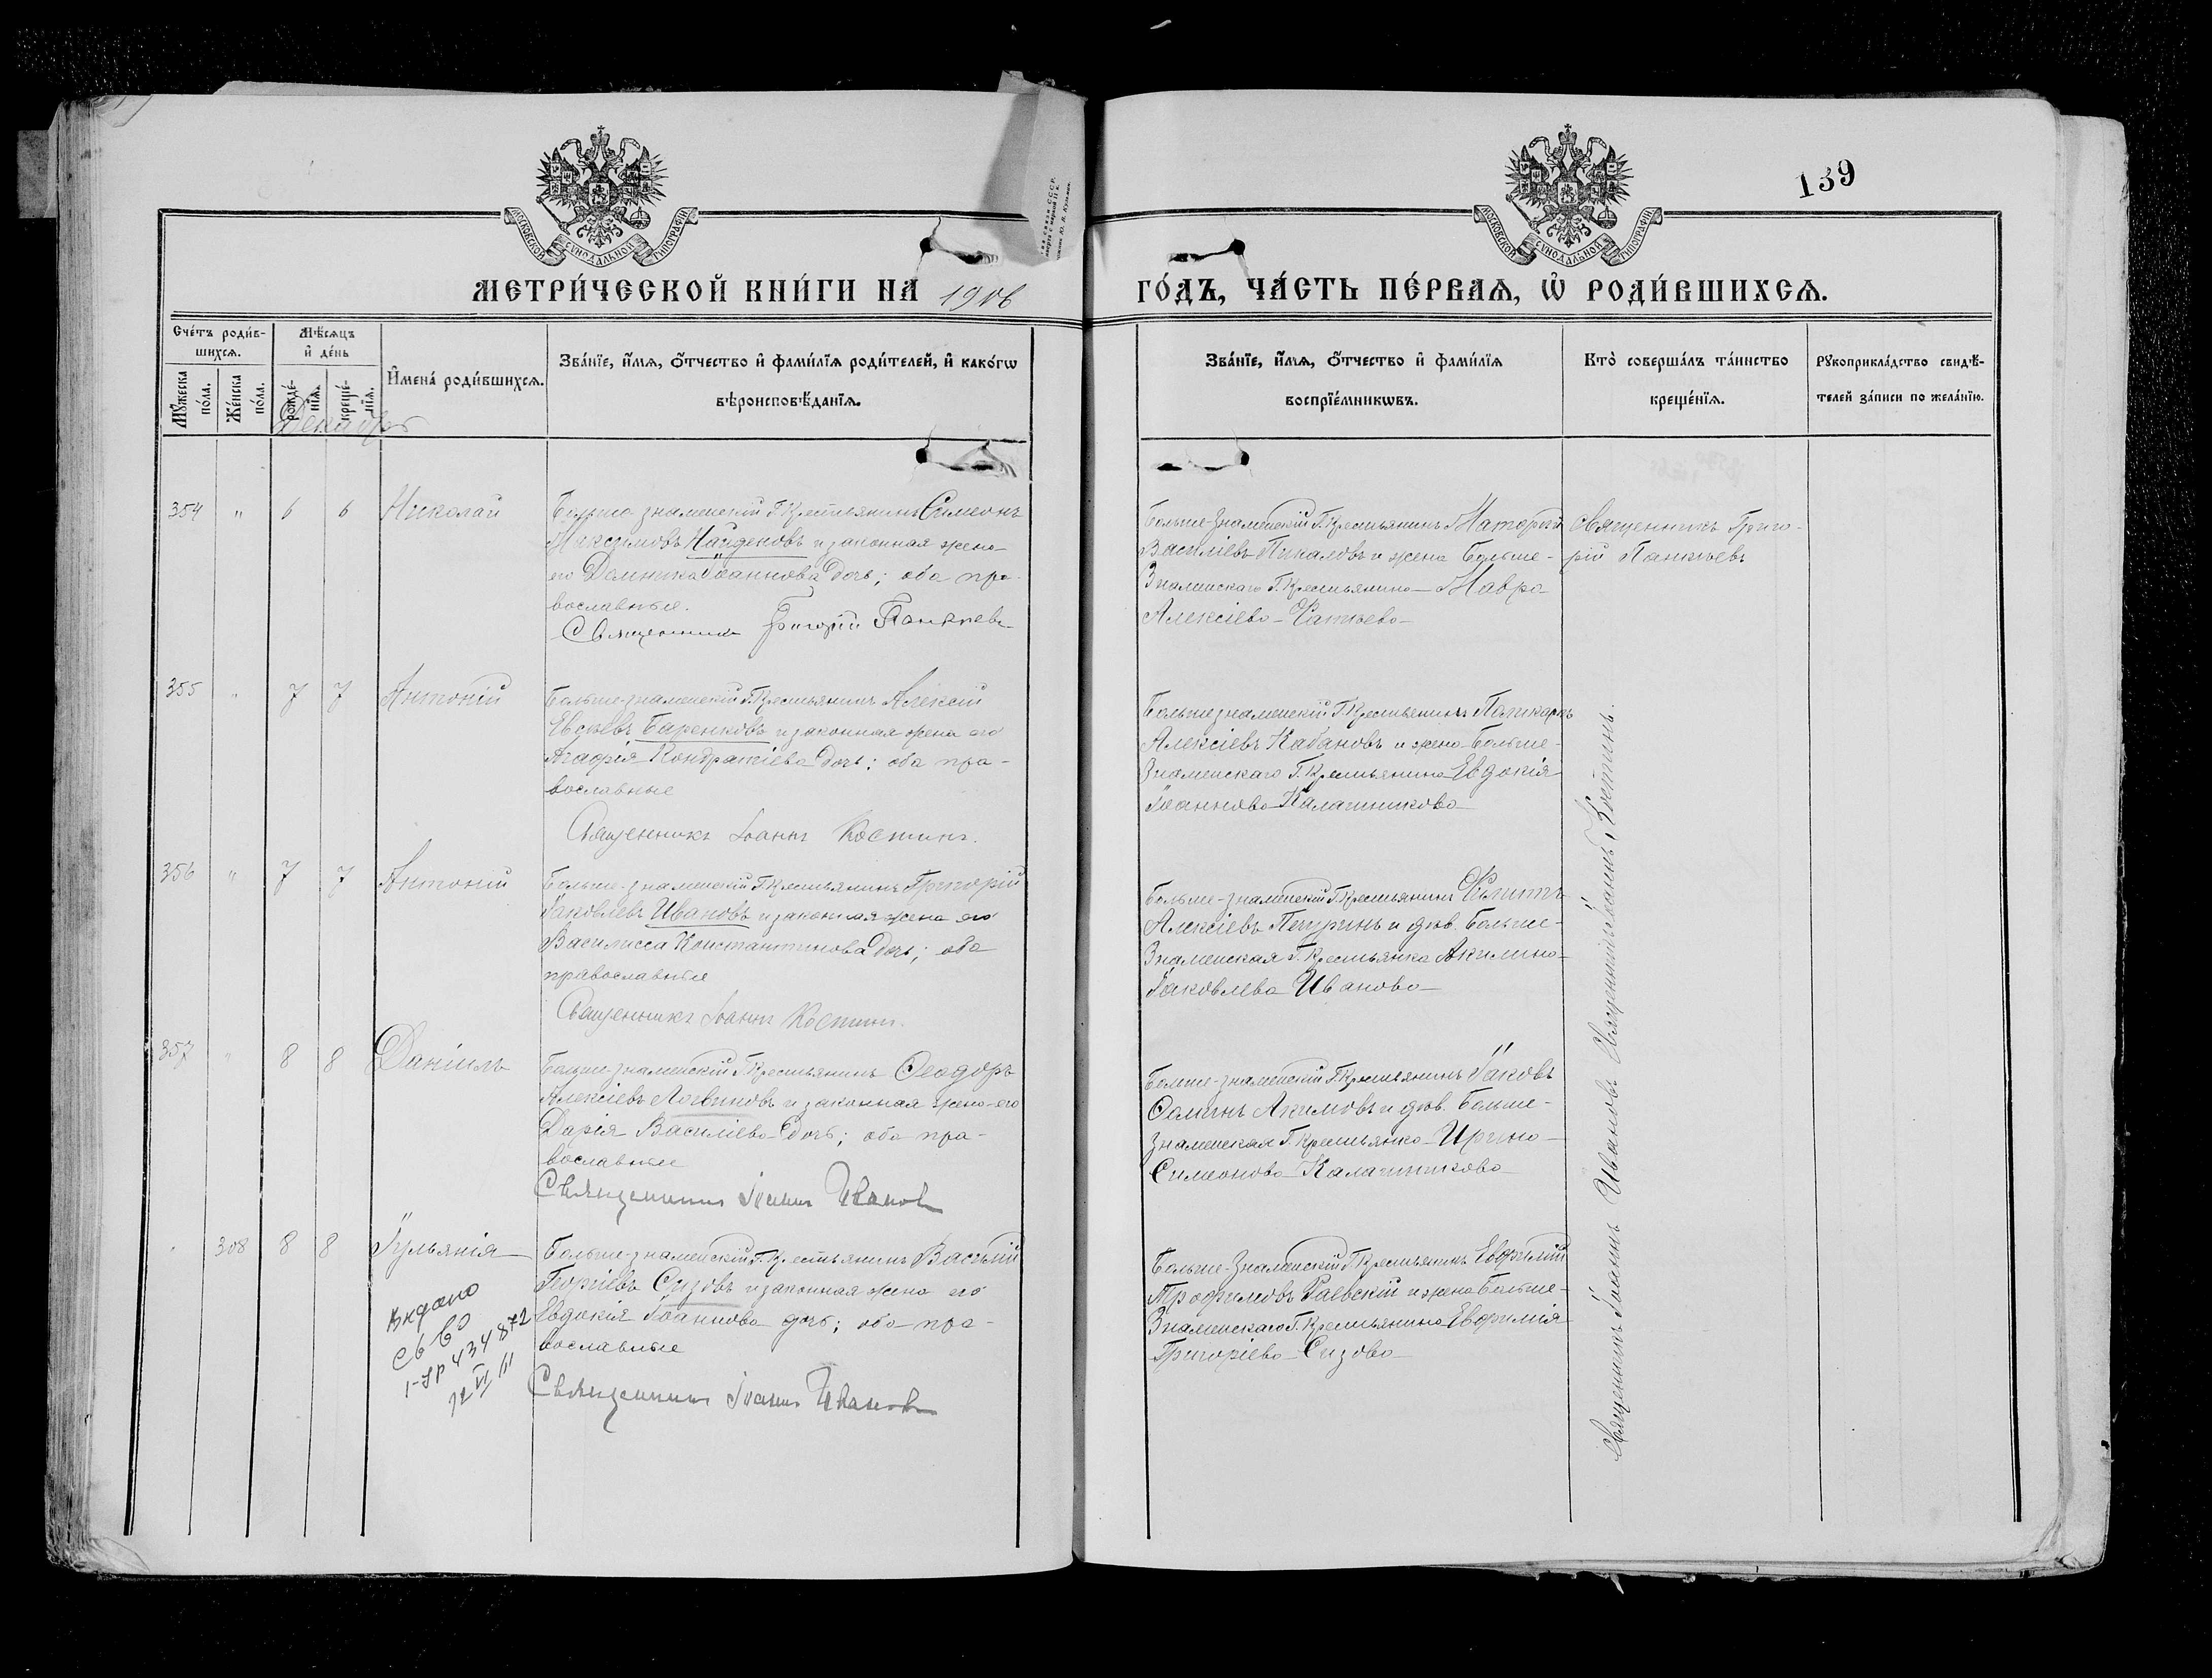 139
МОСКОВСКОЙ СѴНОДАЛЬНОЙ ТИПОГРАФІИ
МОСКОВСКОЙ СѴНОДАЛЬНОЙ ТИПОГРАФІИ
МЕТРИ́ЧЕСКОЙ КНИ́ГИ НА 1906
ГО́ДЪ, ЧА́СТЬ ПЕ́РВАЯ, Ѡ РОДИ́ВШИХСЯ.
Сче́тъ роди́в-
шихся.
Му́жеска по́ла.
Же́нска по́ла.
Мѣ́сяцъ
и де́нь
рожде́-
нія.
креще́-
нія.
Имена́ роди́вшихся.
Зва́ніе, и́мя, о́тчество и фами́лія роди́телей, и како́гѡ
вѣроисповѣ́данія.
Зва́ніе, и́мя, о́тчество и фами́лія
воспріе́мникѡвъ.
Кто̀ соверша́лъ та́инство
креще́нія.
Рꙋкоприкла́дство свидѣ́-
телей за́писи по жела́нію.
Декабрь
354 " 6 6 Николай
Больше-знаменскій Г. Крестьянинъ Симеонъ
Максимовъ Найденовъ и законная жена
его Домника Іоаннова дочь; оба пра-
вославные.
Священникъ Григорій Панкѣевъ
Больше-Знаменскій Г. Крестьянинъ
Василіевъ Пикаловъ и жена Больше-
Знаменскаго Г. Крестьянина Мавра
Алексіева Фатѣева
Священникъ Григо-
рій Панкѣевъ
355 " 7 7 Антоній
Больше-знаменскій Г. Крестьянинъ Алексій
Евсѣевъ Баренковъ и законная жена его
Агафія Кондратіева дочь; оба пра-
вославные
Священникъ Іоаннъ Костинъ.
Большезнаменскій Г. Крестьянинъ Поликарпъ
Алексіевъ Кабановъ и жена Больше-
Знаменскаго Г. Крестьянина Евдокія
Іоаннова Калашникова
356 " 7 7 Антоній
Больше-знаменскій Г. Крестьянинъ Григорій
Іаковлевъ Ивановъ и законная жена его
Василисса Константинова дочь; оба
православные
Священникъ Іоаннъ Костинъ.
Больше-знаменскій Г. Крестьянинъ Филиппъ
Алексіевъ Пичугинъ и дѣв. Больше-
Знаменская Г. Крестьянка Акилина
Іаковлева Иванова
357 " 8 8 Даніилъ
Больше-знаменскій Г. Крестьянинъ Ѳеодоръ
Алексіевъ Логвиновъ и законная жена его
Дарія Василіева дочь; оба пра-
вославные
Священникъ Іоаннъ Ивановъ
Больше-знаменскій Г. Крестьянинъ Іаковъ
Ѳоминъ Акимовъ и дѣв. Больше-
знаменская Г. Крестьянка Ирина
Симеонова Калашникова
308 8 8 Іульянія
Больше-знаменскій Г. Крестьянинъ Василій
Георгіевъ Сизовъ и законная жена его
Евдокія Іоаннова дочь; оба пра-
вославные
Священникъ Іоаннъ Ивановъ
Выдано
св во
434872
12 VI 11
Больше-Знаменскій Г. Крестьянинъ Евфимій
Трофимовъ Раевскій и жена Больше-
Знаменскаго Г. Крестьянина Евфимія
Григоріева Сизова
Священникъ Іоаннъ Ивановъ Священникъ Іоаннъ Костинъ.